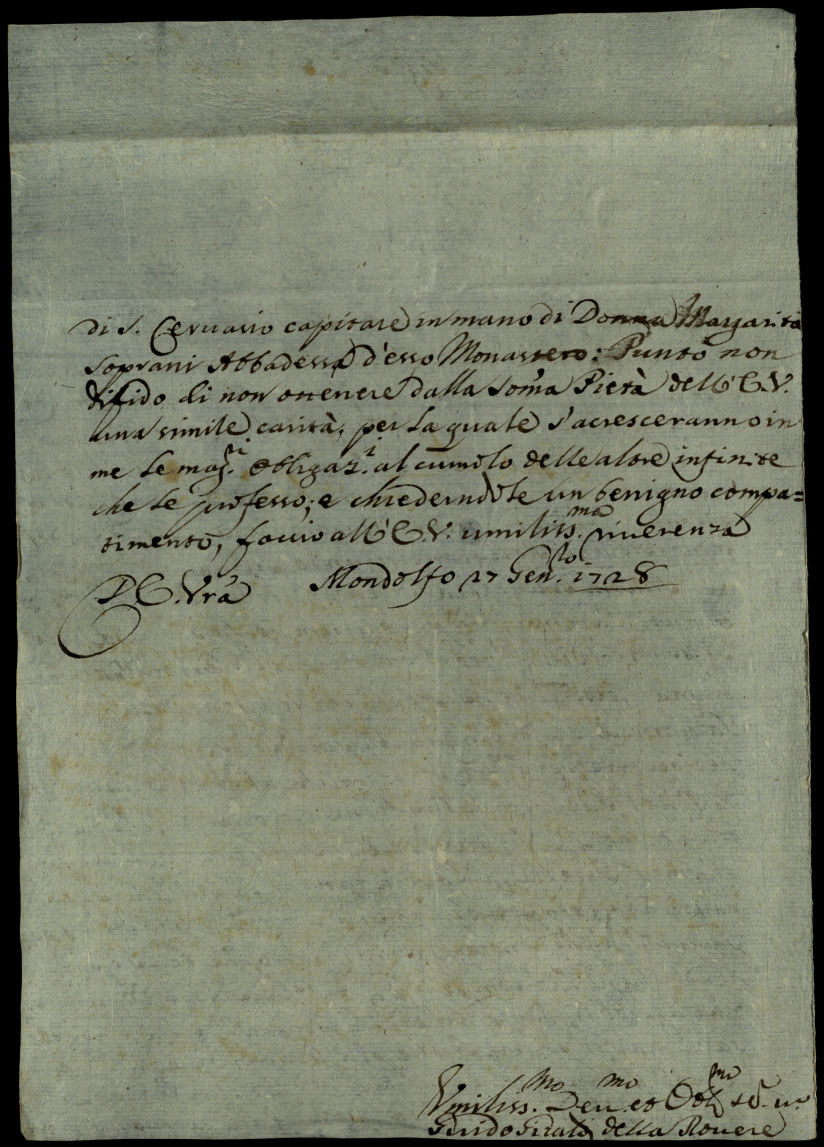 di S. Gervasio capitare in mano di Donna Margarita
Soprani Abbadessa d'esso Monastero: Punto non
difido di non ottenere dalla Som̃a Pietà dell'E.V.
una simile carità, per la quale s'acresceranno in
me le mag.ri obligaz.i al cumolo delle altre infinite
che le professo; e chiedendole un benigno compa=
timento, faccio all'E.V. umiliss.ma riverenza
D.E. Vrã Mondolfo 27 Gen.lo 1728
Umiliss.mo Deu.mo et Obl.mo
Guido della Rovere